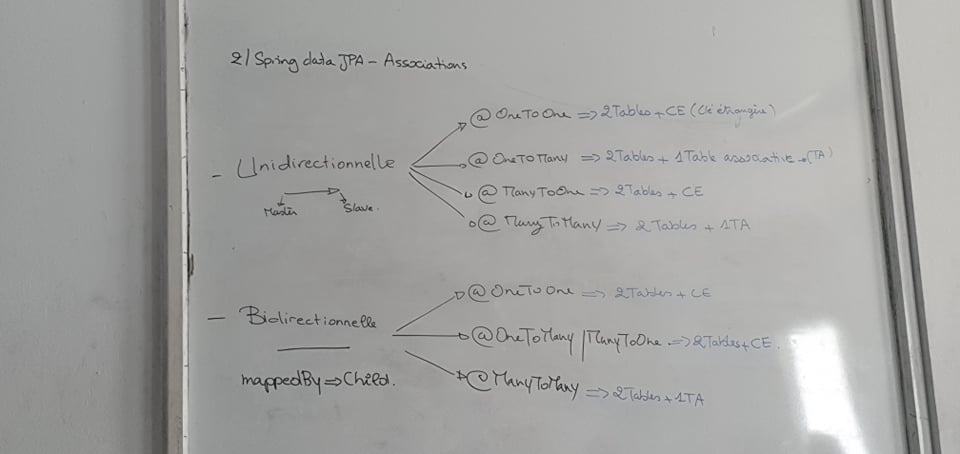 2/ Spring data JPA - Associations
- Unidirectionnelle
Master
Slave.
@ OneToOne => 2 Tables + CE (Clé étrangère)
@ OneToMany => 2 Tables + 1 Table associative → (TA)
@ ManyToOne => 2 Tables + CE
@ ManyToMany => 2 Tables + 1TA
- Bidirectionnelle
mappedBy => Child.
@ OneToOne => 2 Tables + CE
@ OneToMany | ManyToOne => 2 Tables + CE.
@ ManyToMany => 2 Tables + 1TA